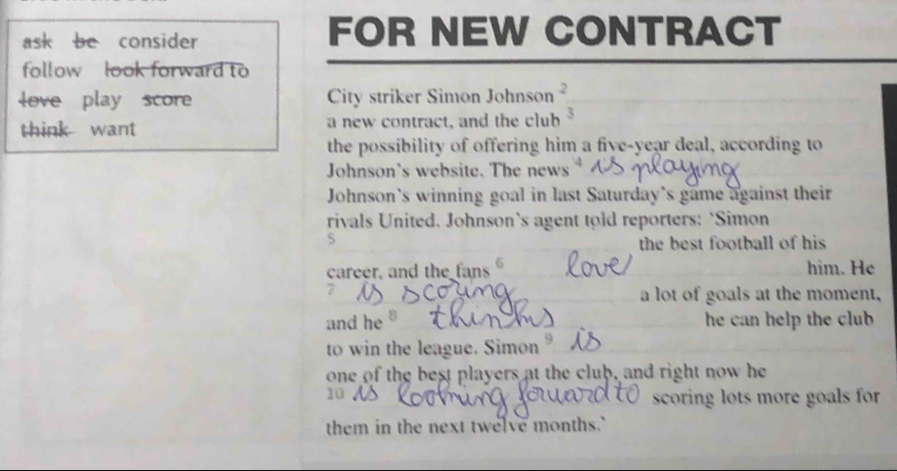 ask be consider
follow look forward to
love play score
think want
FOR NEW CONTRACT
City striker Simon Johnson 2
a new contract, and the club 3
the possibility of offering him a five-year deal, according to
Johnson's website. The news 4 is playing
Johnson's winning goal in last Saturday's game against their
rivals United. Johnson's agent told reporters: 'Simon
5 the best football of his
career, and the fans 6 love him. He
7 is scoring a lot of goals at the moment,
and he 8 thinks he can help the club
to win the league. Simon 9 is
one of the best players at the club, and right now he
10 is looking forward to scoring lots more goals for
them in the next twelve months.'